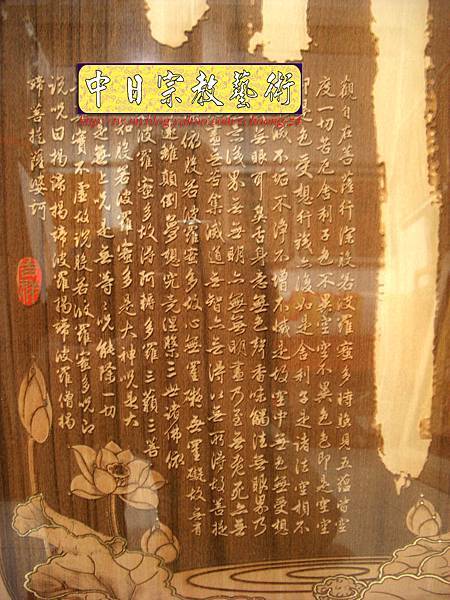 中日宗教藝術
觀自在菩薩行深般若波羅蜜多時照見五蘊皆空
度一切苦厄舍利子色不異空空不異色色即是空空
即是色受想行識亦復如是舍利子是諸法空相不
滅不垢不淨不增不減是故空中無色無受想
無眼耳鼻舌身意無色聲香味觸法無眼界乃
識界無無明亦無無明盡乃至無老死亦無
盡無苦集滅道無智亦無得以無所得故菩提
依般若波羅蜜多故心無罣礙無罣礙故無有
遠離顛倒夢想究竟涅槃三世諸佛依
波羅蜜多故得阿耨多羅三藐三菩
知般若波羅蜜多是大神咒是大
是無上咒是無等等咒能除一切
實不虛故說般若波羅蜜多咒即
說咒曰揭諦揭諦波羅揭諦波羅僧揭
諦菩提薩婆訶